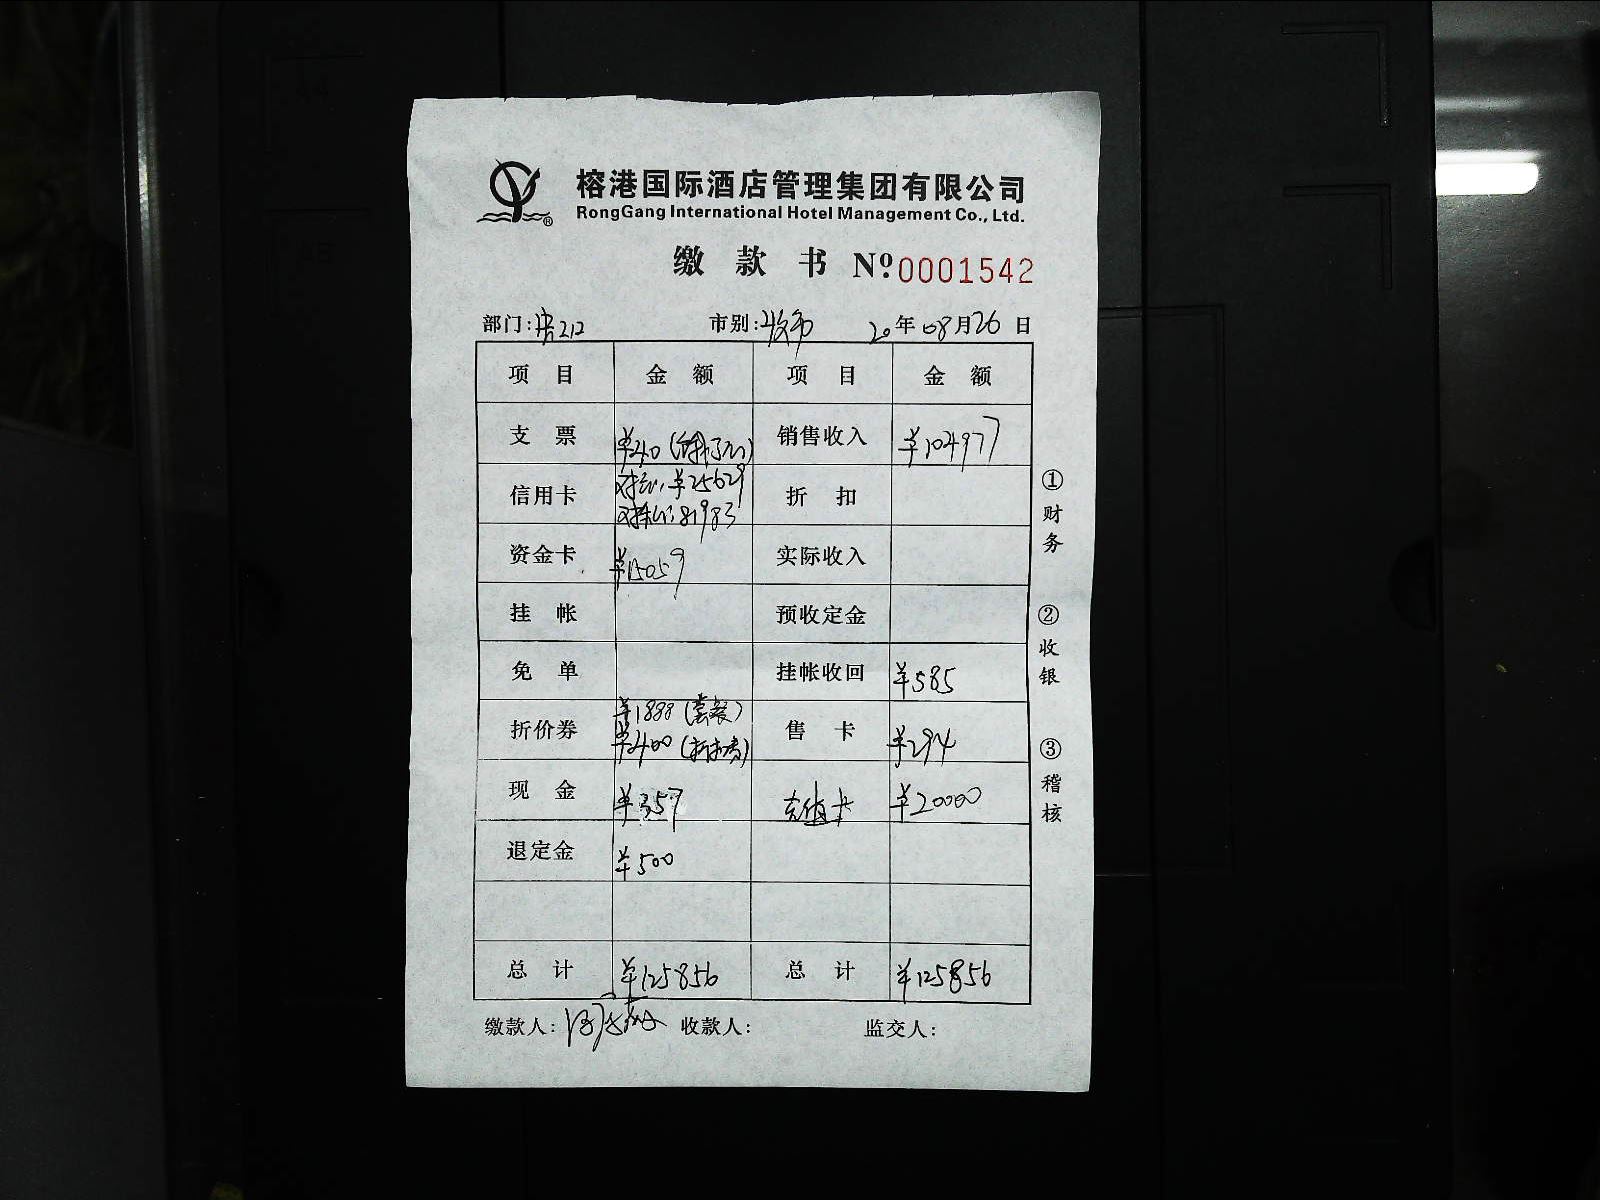 榕港国际酒店管理集团有限公司
RongGang International Hotel Management Co., Ltd.
缴款书 Nº 0001542
部门: 212 市别: 市 20年08月26日
项目 金额 项目 金额
支票 ¥40 销售收入 ¥104977
信用卡 ¥25629 折扣
81983
资金卡 ¥15059 实际收入
挂帐 预收定金
免单 挂帐收回 ¥585
折价券 ¥1888(套餐) 售卡 ¥294
¥400
现金 ¥357 充值卡 ¥20000
退定金 ¥500
总计 ¥125856 总计 ¥125856
缴款人: 收款人: 监交人:
①财务
②收银
③稽核